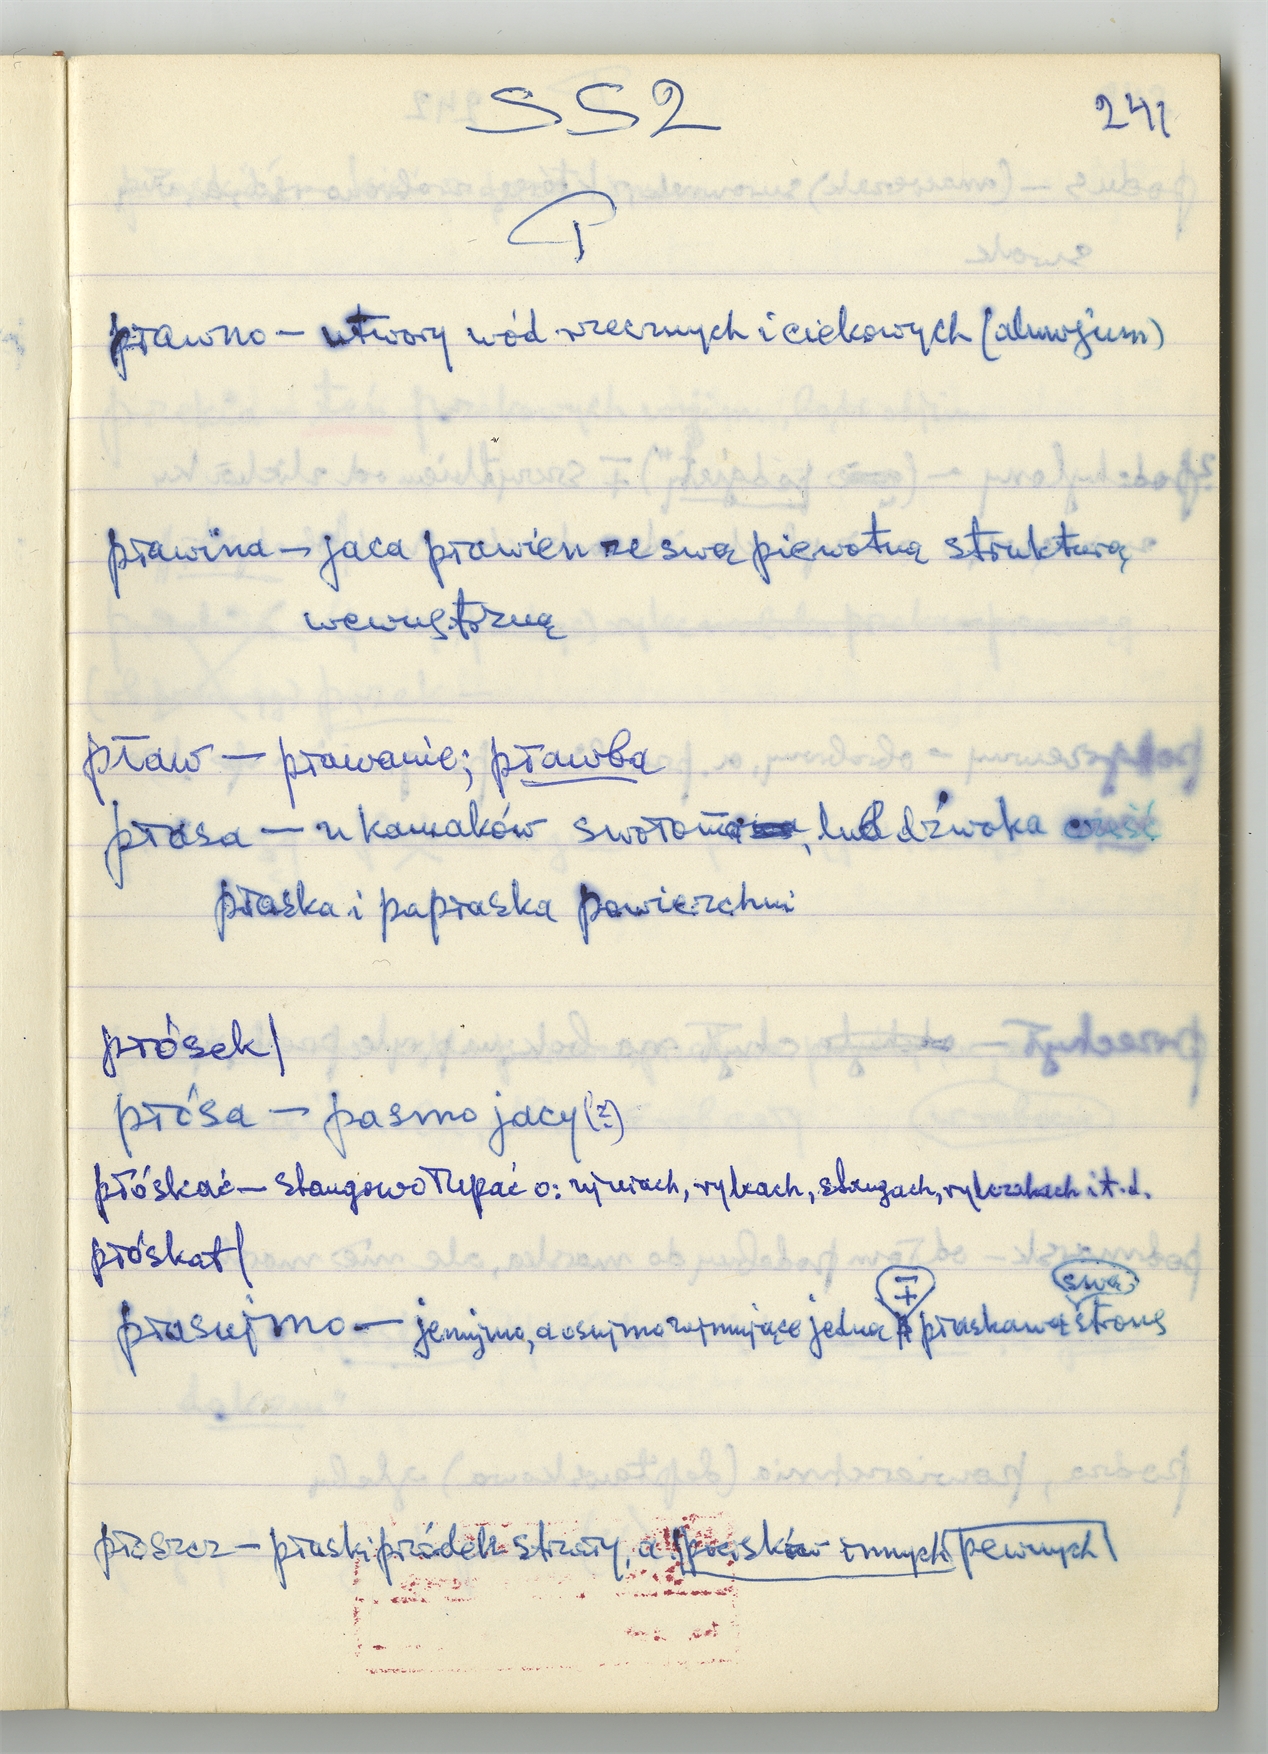 SS2 241
P
pławno — utwory wód rzecznych i ciekowych (aluwjum)
pławina — jaca pławień ze swą pierwotną strukturą
wewnętrzną
pław — pławanie; pławba
płasa — u kamaków swołom, lub dźwoka część
płaska i papłaska powierzchni
płósek/
płósa — pasmo jacy(?)
płóskać — sługowo łupać o: ryjcach, rylcach, strugach, rylczakach i t.d.
płóskat/
płasujmo — jemujmo, a osujmo zajmujące jedną ± płaskawą swą stronę
płoszcz — płaski przódek strzały, a pocisków innych pewnych